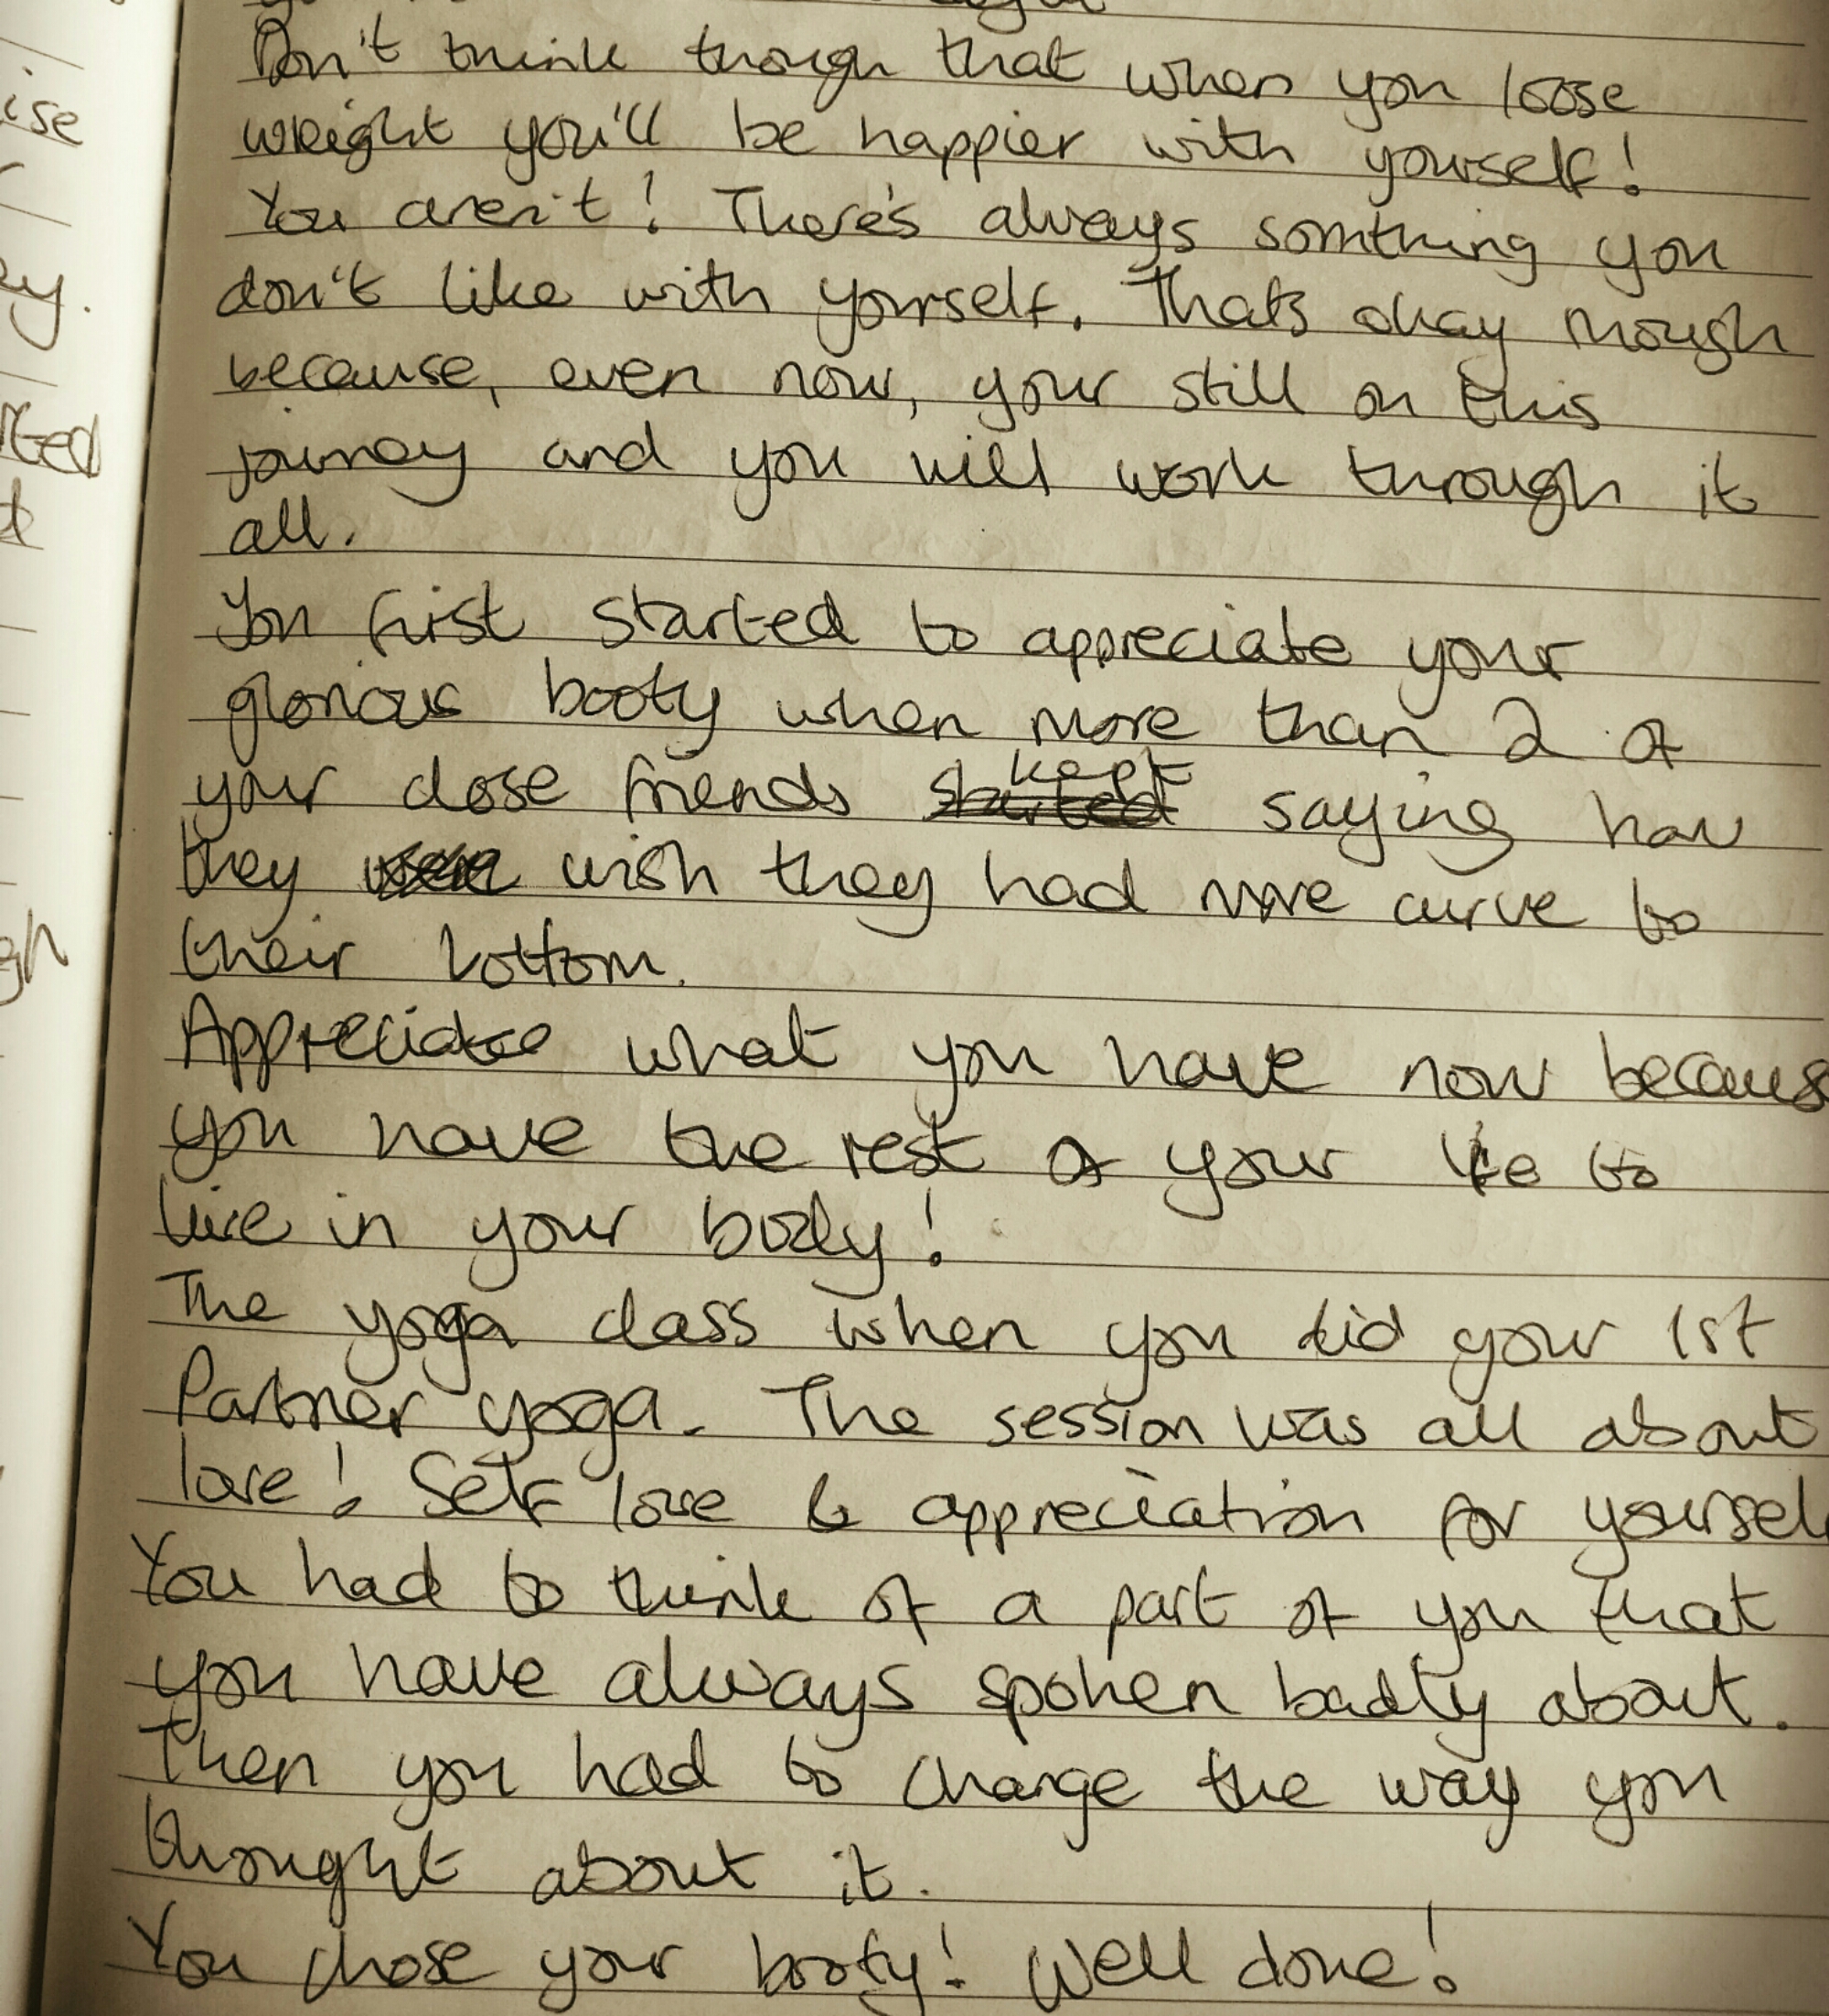 Don't think though that when you loose
weight you'll be happier with yourself!
You aren't! There's always somthing you
don't like with yourself. Thats okay though
because, even now, your still on this
journey and you will work through it
all.
You first started to appreciate your
glorious booty when more than 2 of
your close friends started kept saying how
they were wish they had more curve to
their bottom.
Appreciate what you have now becaus
you have the rest of your life to
live in your body!
The yoga class when you did your 1st
Partner yoga. The session was all about
love! Self love & appreciation for yoursel
You had to think of a part of you that
you have always spoken badly about.
Then you had to change the way you
thought about it.
You chose your booty! Well done!